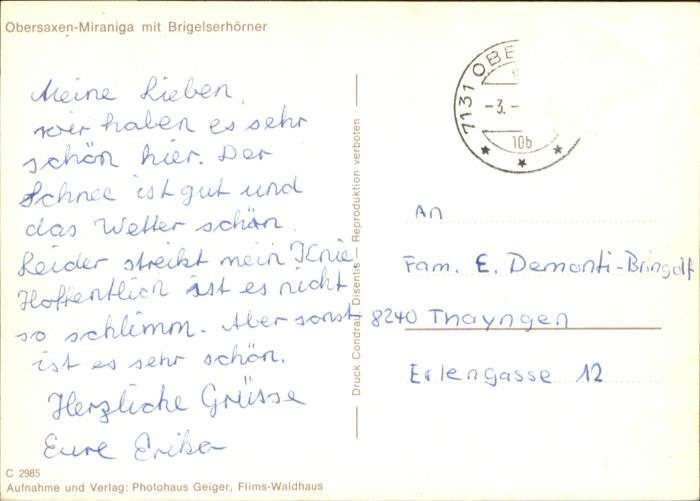 Obersaxen-Miraniga mit Brigelserhörner
Meine Lieben,
wir haben es sehr
schön hier. Der
Schnee ist gut und
das Wetter schön.
Leider streikt mein Knie
Hoffentlich ist es nicht
so schlimm. Aber sonst
ist es sehr schön.
Herzliche Grüsse
Eure Erika
C 2985
Aufnahme und Verlag: Photohaus Geiger, Flims-Waldhaus
Druck Condrau Disentis – Reproduktion verboten
7131 OBE
-3.-
10b
An
Fam. E. Demonti-Bringolf
8240 Thayngen
Erlengasse 12